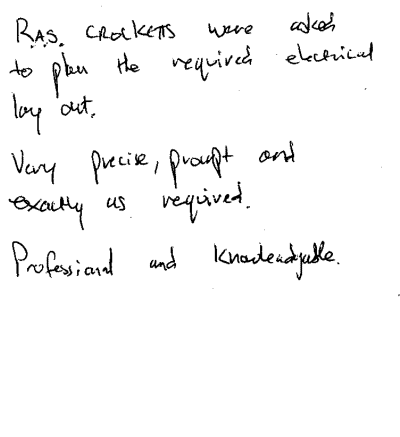 R.A.S. CROCKETTS were asked
to plan the required electrical
lay out.
Very precise, prompt and
exactly as required.
Professional and Knowleadgable.